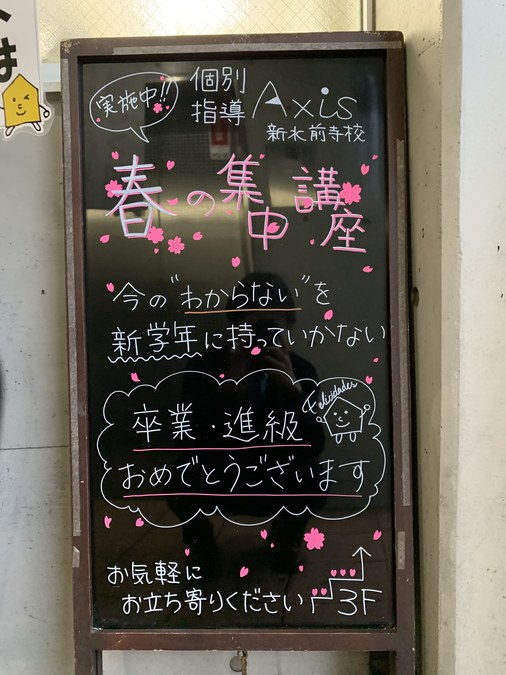 は
実施中!!
個別
指導 Axis
新水前寺校
春の集中講座
今の"わからない"を
新学年に持っていかない
Felicidades
卒業・進級
おめでとうございます
お気軽に
お立ち寄りください
3F